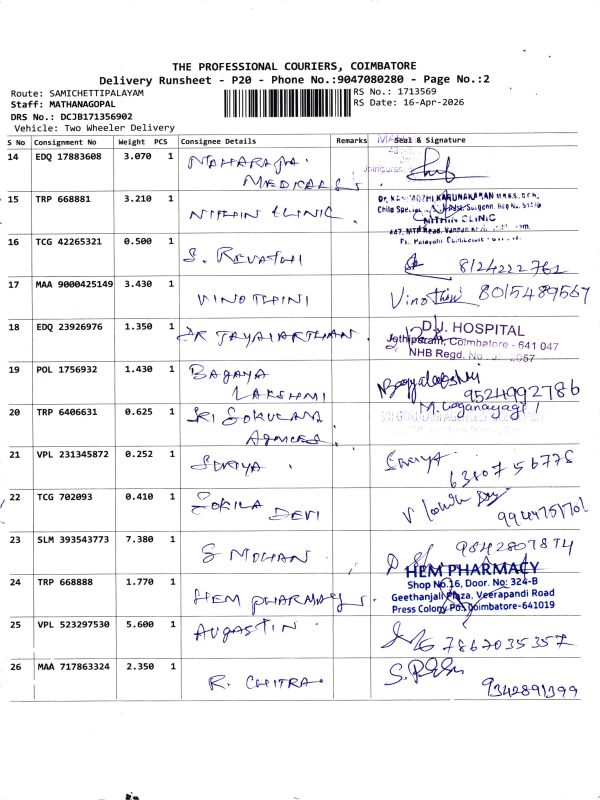 THE PROFESSIONAL COURIERS, COIMBATORE
Delivery Runsheet - P20 - Phone No.:9047080280 - Page No.:2
Route: SAMICHETTIPALAYAM
Staff: MATHANAGOPAL
DRS No.: DCJB171356902
Vehicle: Two Wheeler Delivery
RS No.: 1713569
RS Date: 16-Apr-2026
S No Consignment No Weight PCS Consignee Details Remarks Seal & Signature
14 EDQ 17883608 3.070 1 MAHARAJA
MEDICALS
15 TRP 668881 3.210 1 NITHIN CLINIC.
KARUNAKARAN M.B.B.S., D.C.H.,
NITHIN CLINIC
16 TCG 42265321 0.500 1 S. REVATHI
8124222761
17 MAA 9000425149 3.430 1 VINOTHINI Vinothini 8015489567
18 EDQ 23926976 1.350 1 DR JAYAVARTHAN
D.J. HOSPITAL
Jothipuram, Coimbatore - 641 047
NHB Regd. No.
19 POL 1756932 1.430 1 BAGAYA
LAKSHMI
Bagyalakshmi
9524992786
20 TRP 6406631 0.625 1 SRI GOKULAM
AGENCIES.
M. Loganayagi
21 VPL 231345872 0.252 1 SURIYA Suriya
6380756778
22 TCG 702093 0.410 1 KOKILA
DEVI
23 SLM 393543773 7.380 1 S MOHAN
9842807874
24 TRP 668888 1.770 1 HEM PHARMACY
HEM PHARMACY
Shop No.16, Door. No: 324-B
Geethanjali Plaza, Veerapandi Road
Press Colony Po. Coimbatore-641019
25 VPL 523297530 5.600 1 AUGASTIN
7867035357
26 MAA 717863324 2.350 1 R. CHITRA
9342891399